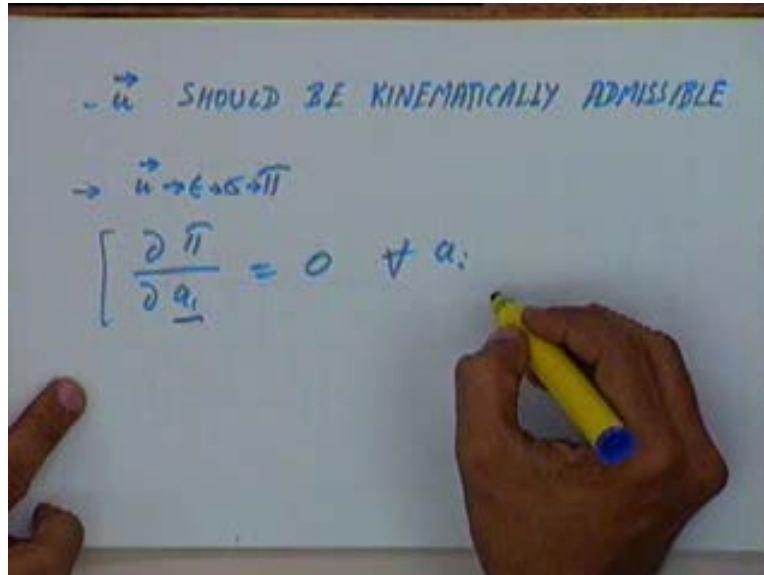 - u⃗ SHOULD BE KINEMATICALLY ADMISSIBLE
→ u⃗ → ε → σ → π
[ ∂π / ∂a_i = 0 ∀ a_i